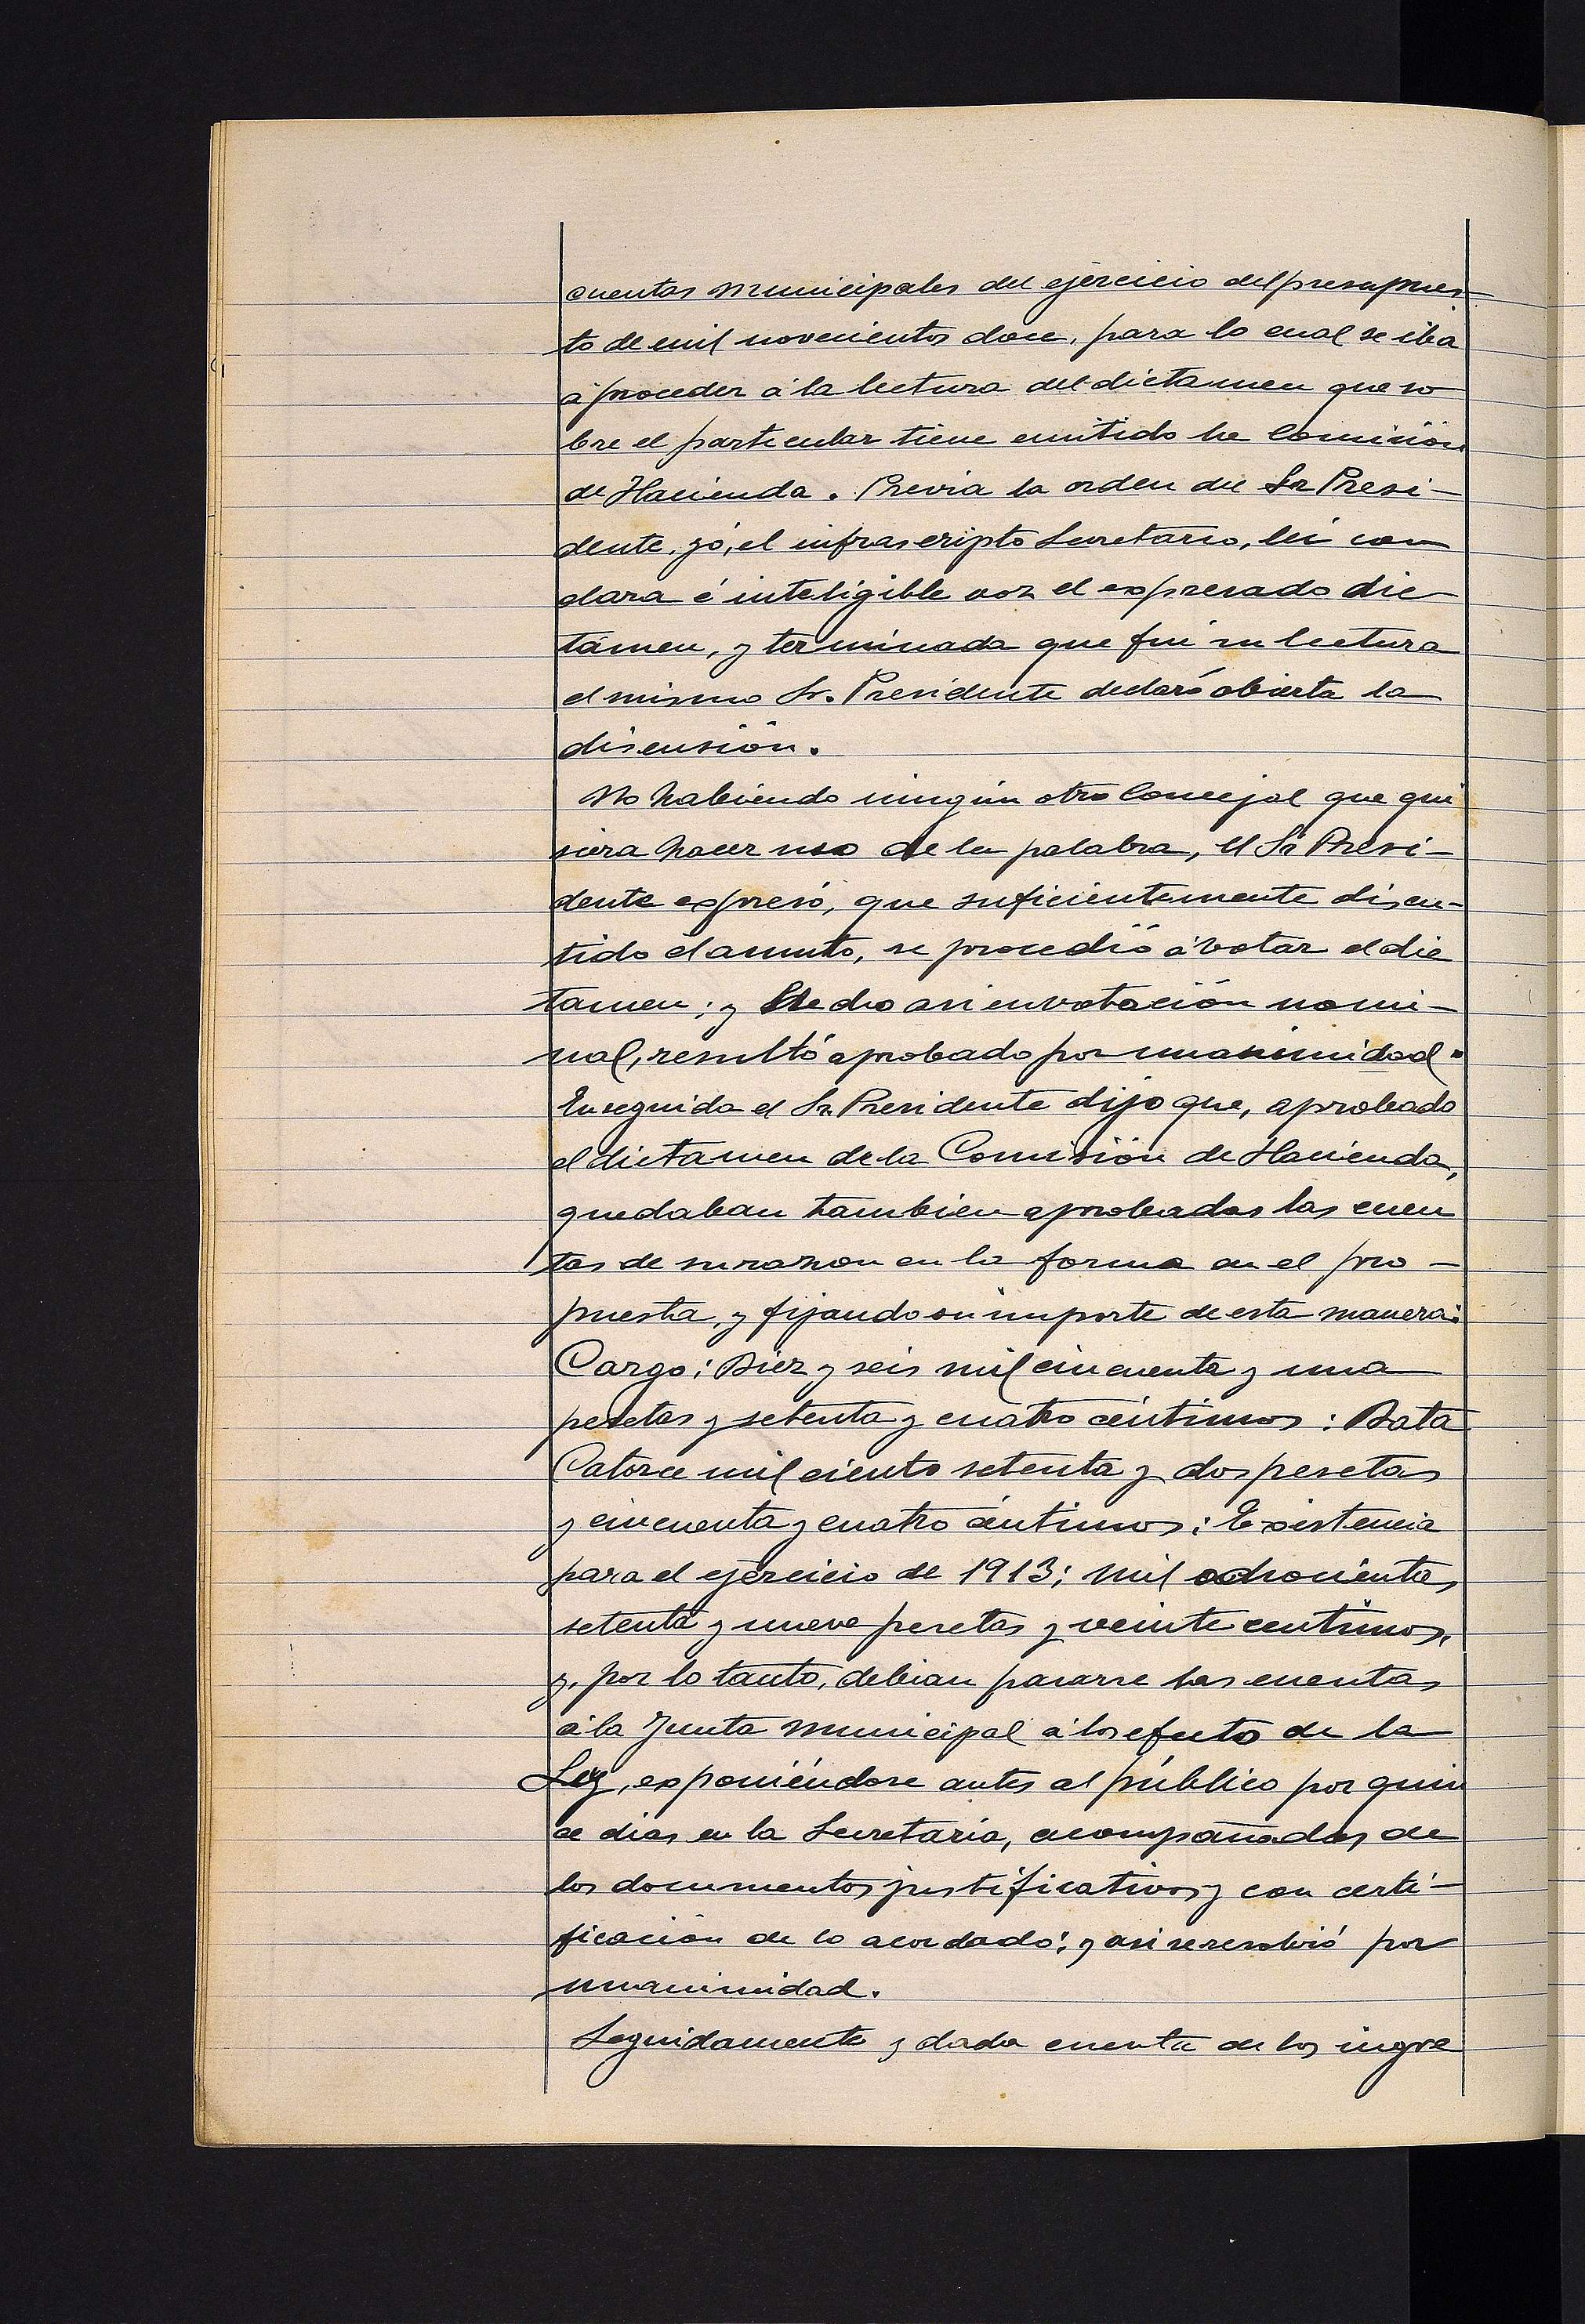 cuentas municipales del ejercicio del presupues-
to de mil novecientos doce, para lo cual se iba
á proceder á la lectura del dictamen que so
bre el particular tiene emitido la Comisión
de Hacienda. Previa la orden del Sr Presi-
dente, yó, el infrascripto Secretario, leí con
clara é inteligible voz el expresado dic-
támen, y terminada que fué su lectura
el mismo Sr. Presidente declaró abierta la
discusión.
No habiendo ningún otro Concejal que qui
siera hacer uso de la palabra, el Sr Presi-
dente expresó, que suficientemente discu-
tido el asunto, se procedió á votar el dic
tamen; y hecho asi en votación nomi-
nal, resultó aprobado por unanimidad.
Enseguida el Sr. Presidente dijo que, aprobado
el dictamen de la Comisión de Hacienda,
quedaban tambien aprobadas las cuen
tas de su razon en la forma en el pro-
puesta, y fijando su importe de esta manera:
Cargo: Diez y seis mil cincuenta y una
pesetas y setenta y cuatro céntimos: Data
Catorce mil ciento setenta y dos pesetas
y cincuenta y cuatro céntimos: Existencia
para el ejercicio de 1913; mil ochocientas
setenta y nueve pesetas y veinte centimos,
y, por lo tanto, debian pasarse las cuentas
á la Junta municipal á los efecto de la
Ley, exponiéndose antes al público por quin
ce dias en la Secretaría, acompañadas de
los documentos justificativos y con certi-
ficación de lo acordado; y asi se resolvió por
unanimidad.
Seguidamente y dada cuenta de los ingre